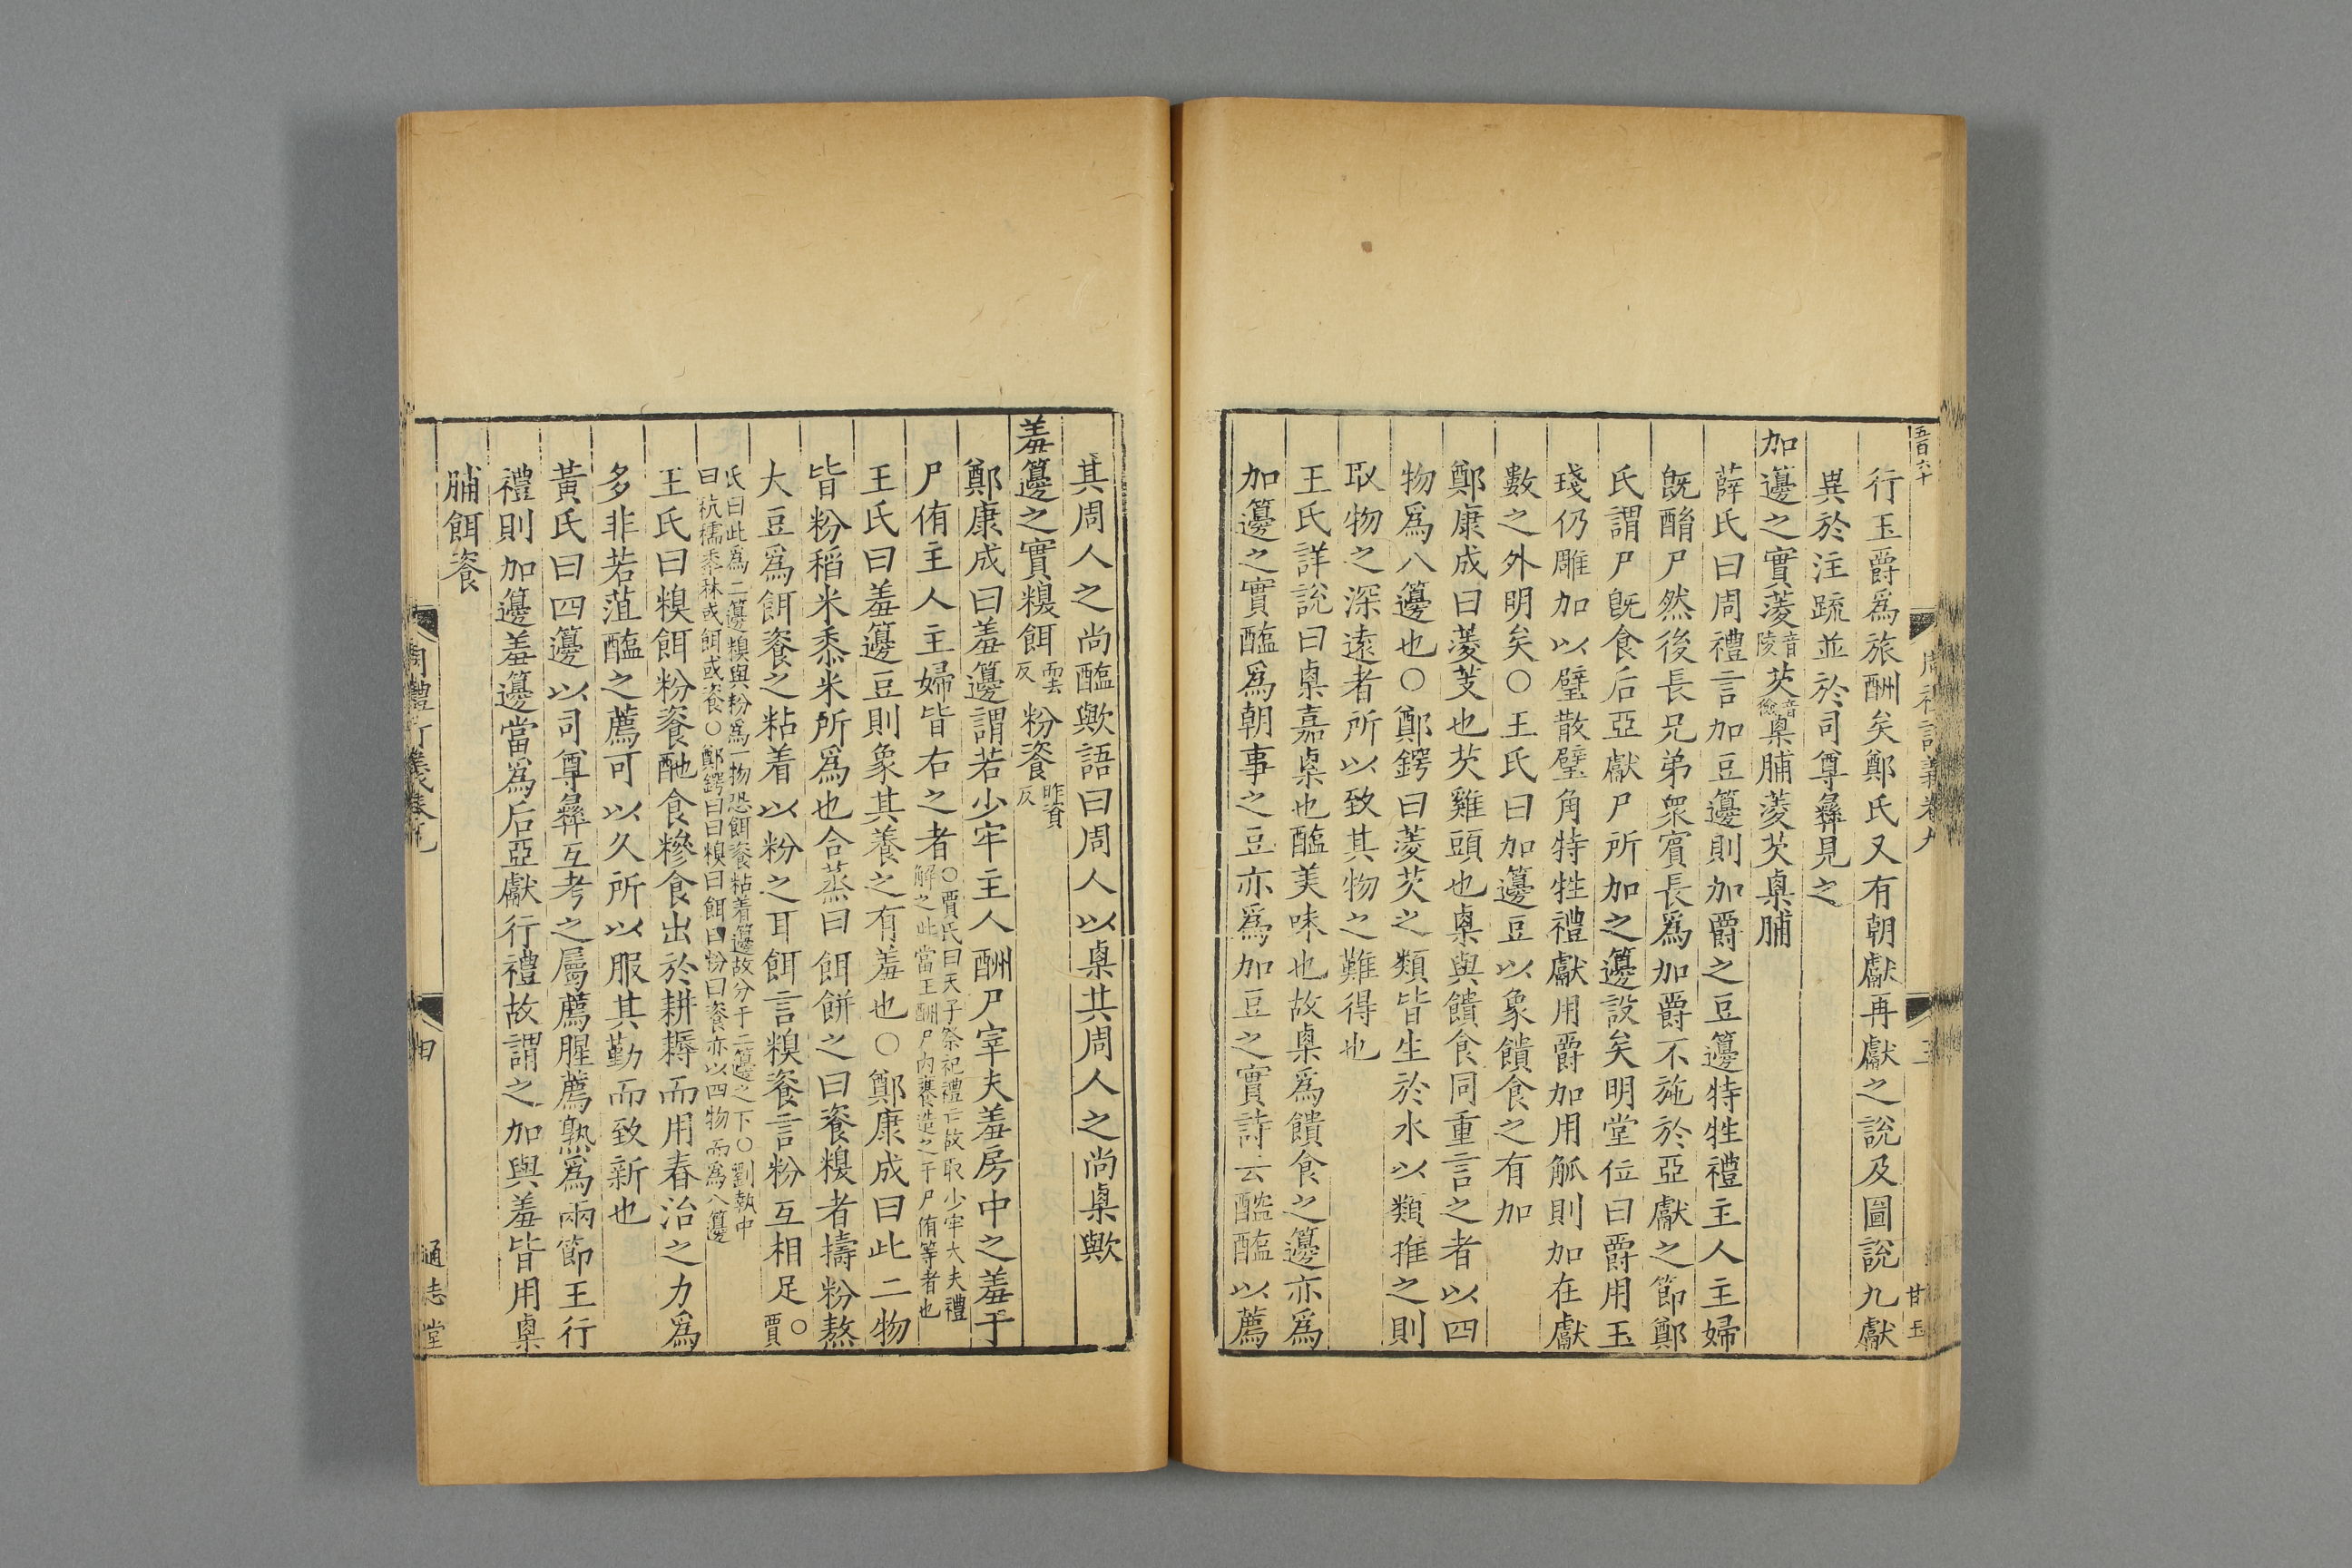 五百六十
行玉爵爲旅酬矣鄭氏又有朝獻再獻之說及圖說九獻
異於注䟽並於司尊彝見之
加籩之實菱音陵芡音儉㮚脯菱芡㮚脯
薛氏曰周禮言加豆籩則加爵之豆籩特牲禮主人主婦
旣酳尸然後長兄弟眾賓長爲加爵不施於亞獻之節鄭
氏謂尸旣食后亞獻尸所加之籩設矣明堂位曰爵用玉
琖仍雕加以璧散璧角特牲禮獻用爵加用觚則加在獻
數之外明矣○王氏曰加籩豆以象饋食之有加
鄭康成曰菱芰也芡雞頭也㮚與饋食同重言之者以四
物爲八籩也○鄭鍔曰菱芡之類皆生於水以類推之則
取物之深遠者所以致其物之難得也
王氏詳說曰㮚嘉㮚也醢美味也故㮚爲饋食之籩亦爲
加籩之實醢爲朝事之豆亦爲加豆之實詩云醓醢以薦
其周人之尚醢歟語曰周人以㮚其周人之尚㮚歟
羞籩之實糗餌而志反粉餈昨資反
鄭康成曰羞籩謂若少牢主人酬尸宰夫羞房中之羞于
尸侑主人主婦皆右之者○賈氏曰天子祭祀禮亡故取少牢大夫禮
解之此當王酬尸內饔薦之于尸侑等者也
王氏曰羞籩豆則象其養之有羞也○鄭康成曰此二物
皆粉稻米黍米所爲也合蒸曰餌餅之曰餈糗者擣粉熬
大豆爲餌餈之粘着以粉之耳餌言糗餈言粉互相足○賈
氏曰此爲二籩糗與粉爲一物恐餌餈粘着籩故分于二籩之下○劉執中
曰秔稬黍秫或餌或餈○鄭鍔曰曰糗曰餌曰粉曰餈亦以四物而爲八籩
王氏曰糗餌粉餈酏食糝食出於耕耨而用舂治之力爲
多非若菹醢之薦可以久所以服其勤而致新也
黃氏曰四籩以司尊彝互考之屬薦腥薦熟爲兩節王行
禮則加籩羞籩當爲后亞獻行禮故謂之加與羞皆用㮚
脯餌餈
通志堂